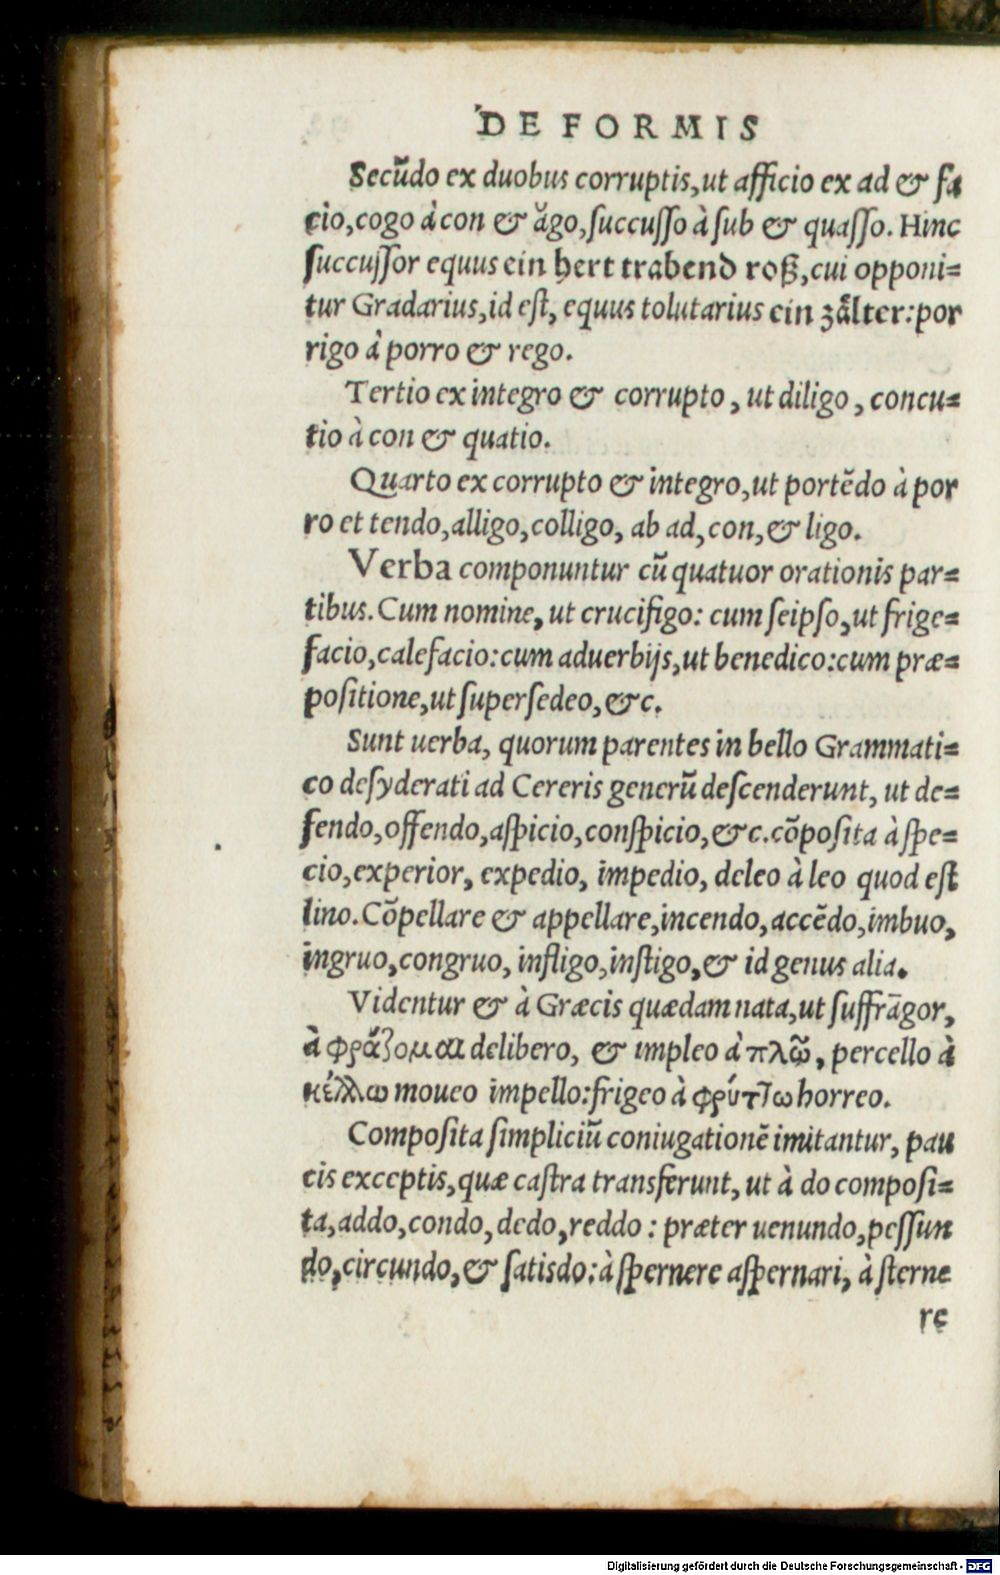 DE FORMIS
Secũdo ex duobus corruptis, ut afficio ex ad & fa
cio, cogo à con & ăgo, succusso à sub & quasso. Hinc
succussor equus ein hert trabend roß, cui opponi=
tur Gradarius, id est, equus tolutarius ein zaͤlter: por
rigo à porro & rego.
Tertio ex integro & corrupto, ut diligo, concu=
tio à con & quatio.
Quarto ex corrupto & integro, ut portẽdo à por
ro et tendo, alligo, colligo, ab ad, con, & ligo.
Verba componuntur cũ quatuor orationis par=
tibus. Cum nomine, ut crucifigo: cum seipso, ut frige=
facio, calefacio: cum aduerbijs, ut benedico: cum præ=
positione, ut supersedeo, &c.
Sunt uerba, quorum parentes in bello Grammati=
co desyderati ad Cereris generũ descenderunt, ut de=
fendo, offendo, aspicio, conspicio, &c. cõposita à spe=
cio, experior, expedio, impedio, deleo à leo quod est
lino. Cõpellare & appellare, incendo, accẽdo, imbuo,
ingruo, congruo, infligo, instigo, & id genus alia.
Videntur & à Græcis quædam nata, ut suffrāgor,
à φράζομαι delibero, & impleo à πλῶ, percello à
κέλλω moueo impello: frigeo à φρύτlω horreo.
Composita simpliciũ coniugationẽ imitantur, pau
cis exceptis, quæ castra transferunt, ut à do composi=
ta, addo, condo, dedo, reddo: præter uenundo, pessun
do, circundo, & satisdo: à spernere aspernari, à sterne
re
Digitalisierung gefördert durch die Deutsche Forschungsgemeinschaft - DFG